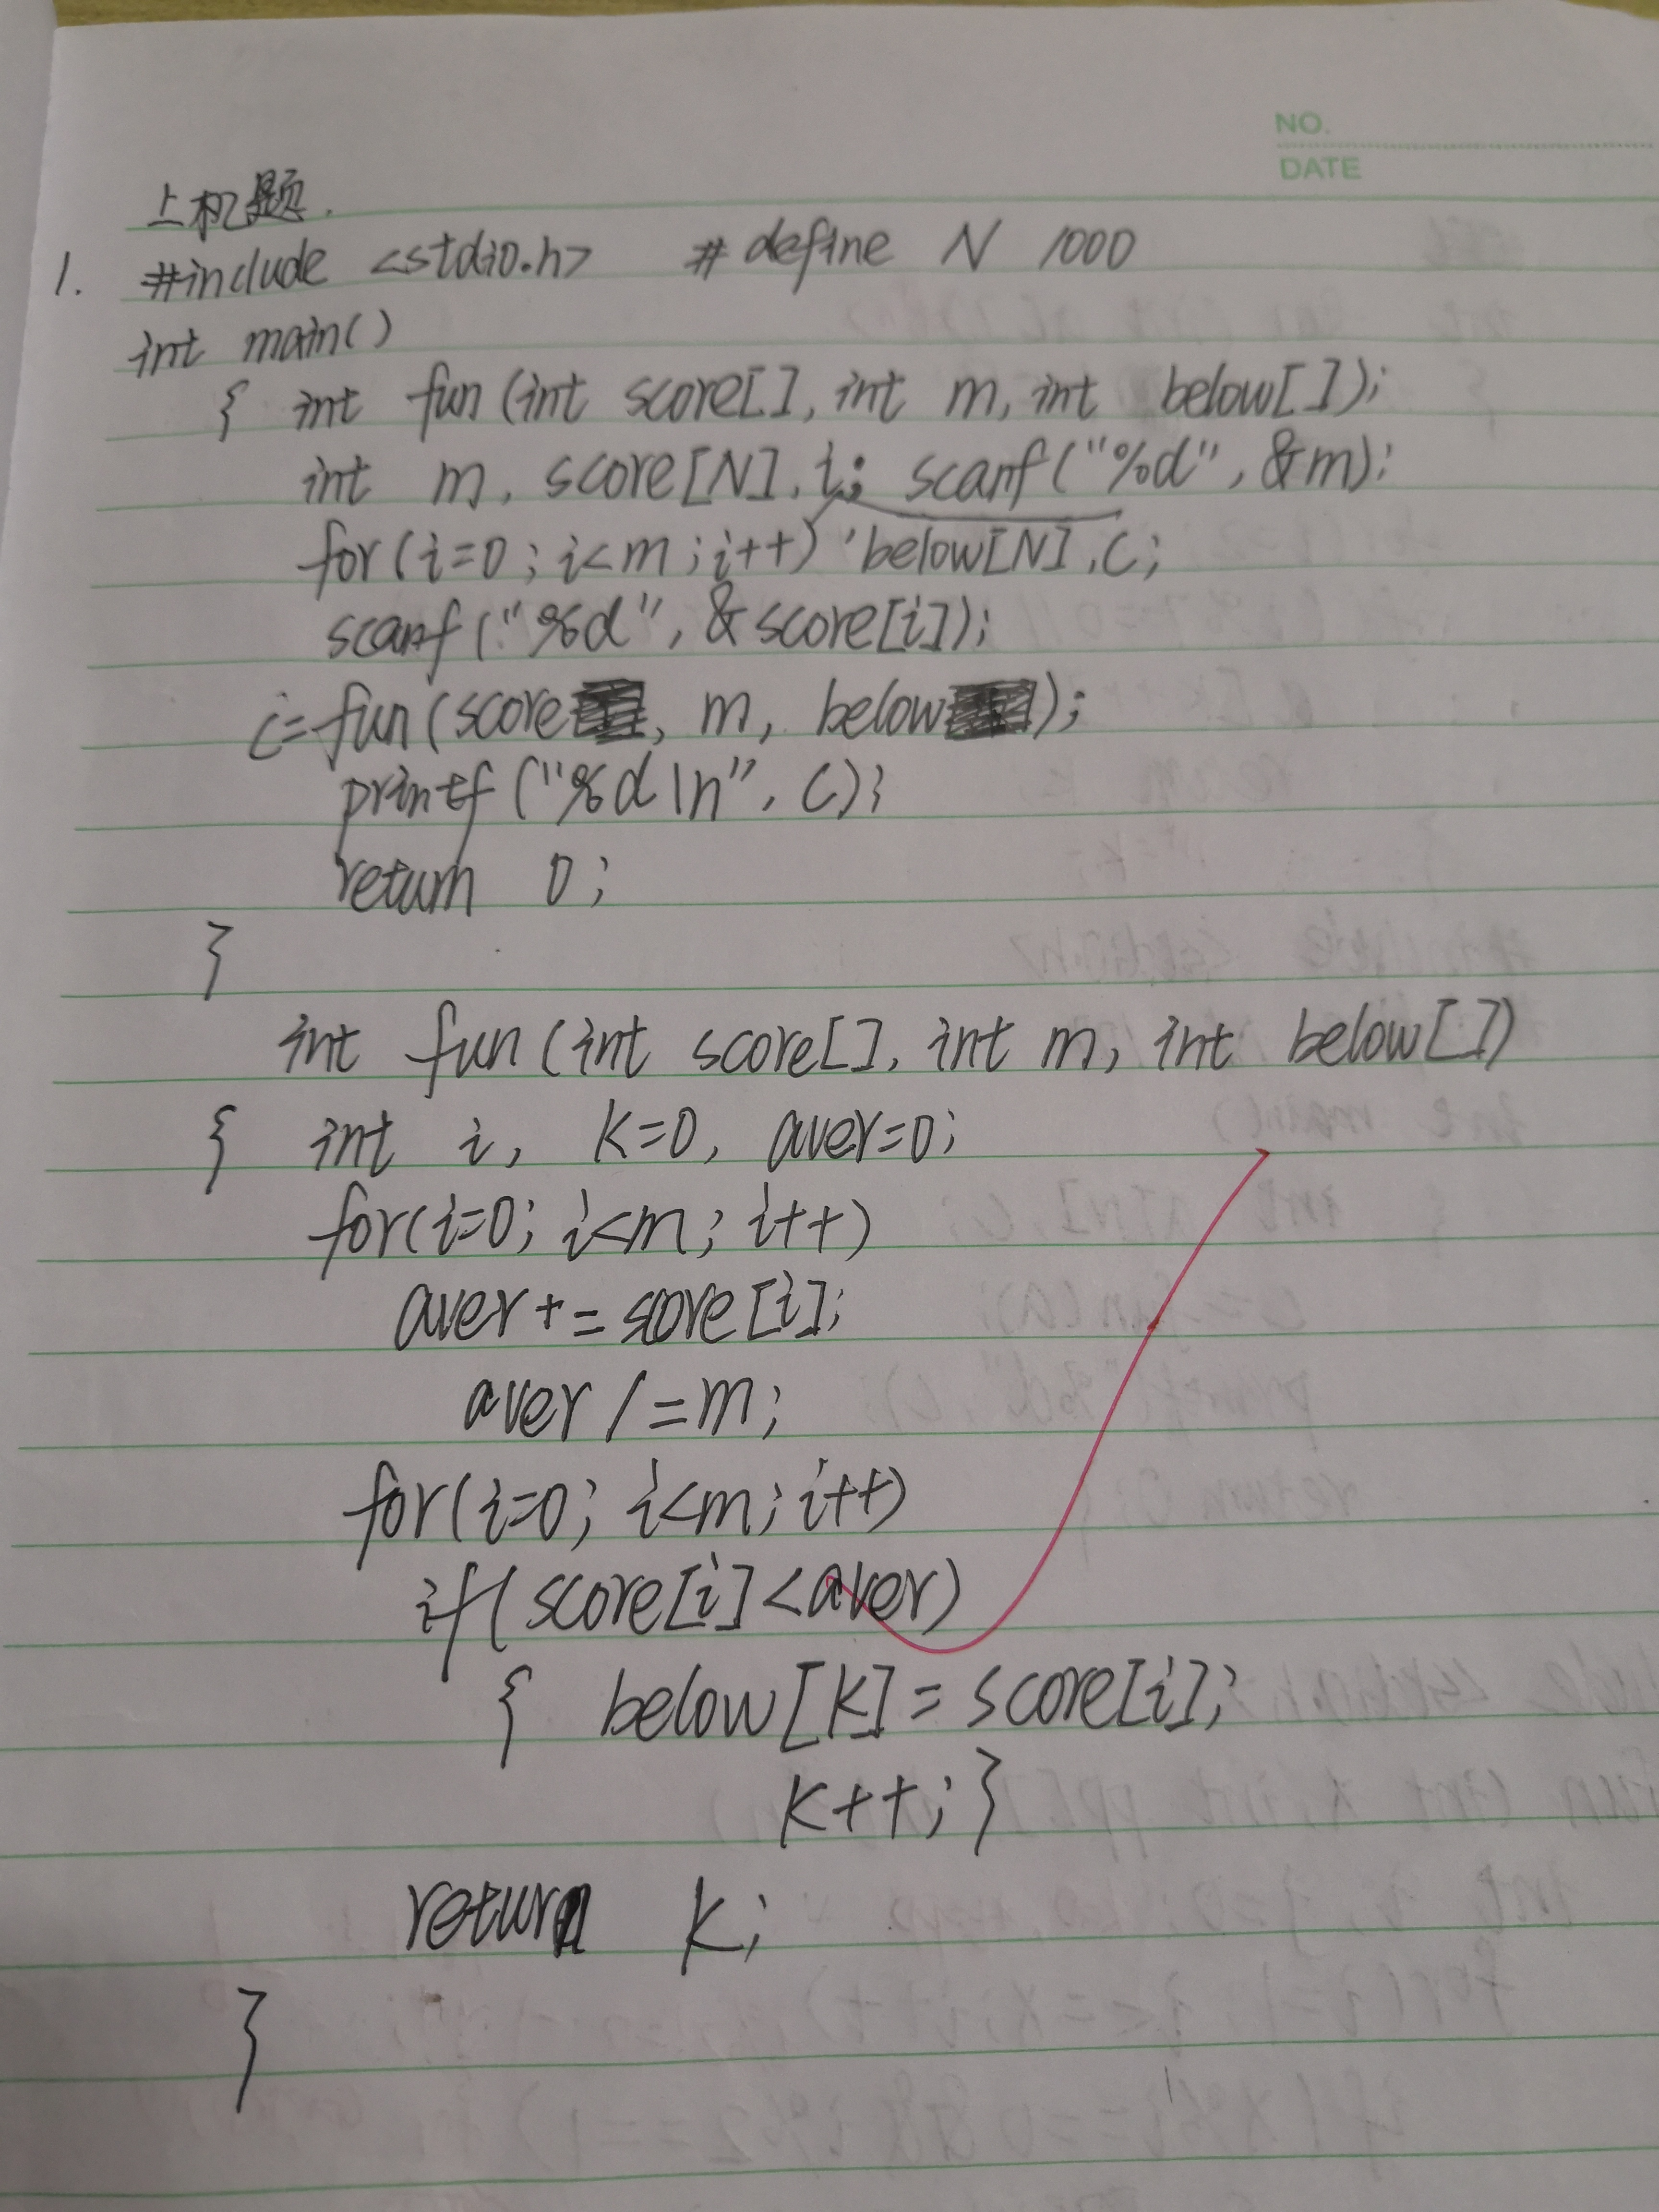 NO.
DATE
上机题.
1. #include <stdio.h> #define N 1000
int main()
{ int fun(int score[], int m, int below[]);
int m, score[N], i; scanf("%d", &m);
for(i=0; i<m; i++) , below[N], c;
scanf("%d", &score[i]);
c=fun(score, m, below);
printf("%d\n", c);
return 0;
}
int fun(int score[], int m, int below[])
{ int i, k=0, aver=0;
for(i=0; i<m; i++)
aver+=score[i];
aver/=m;
for(i=0; i<m; i++)
if(score[i]<aver)
{ below[k]=score[i];
k++; }
return k;
}